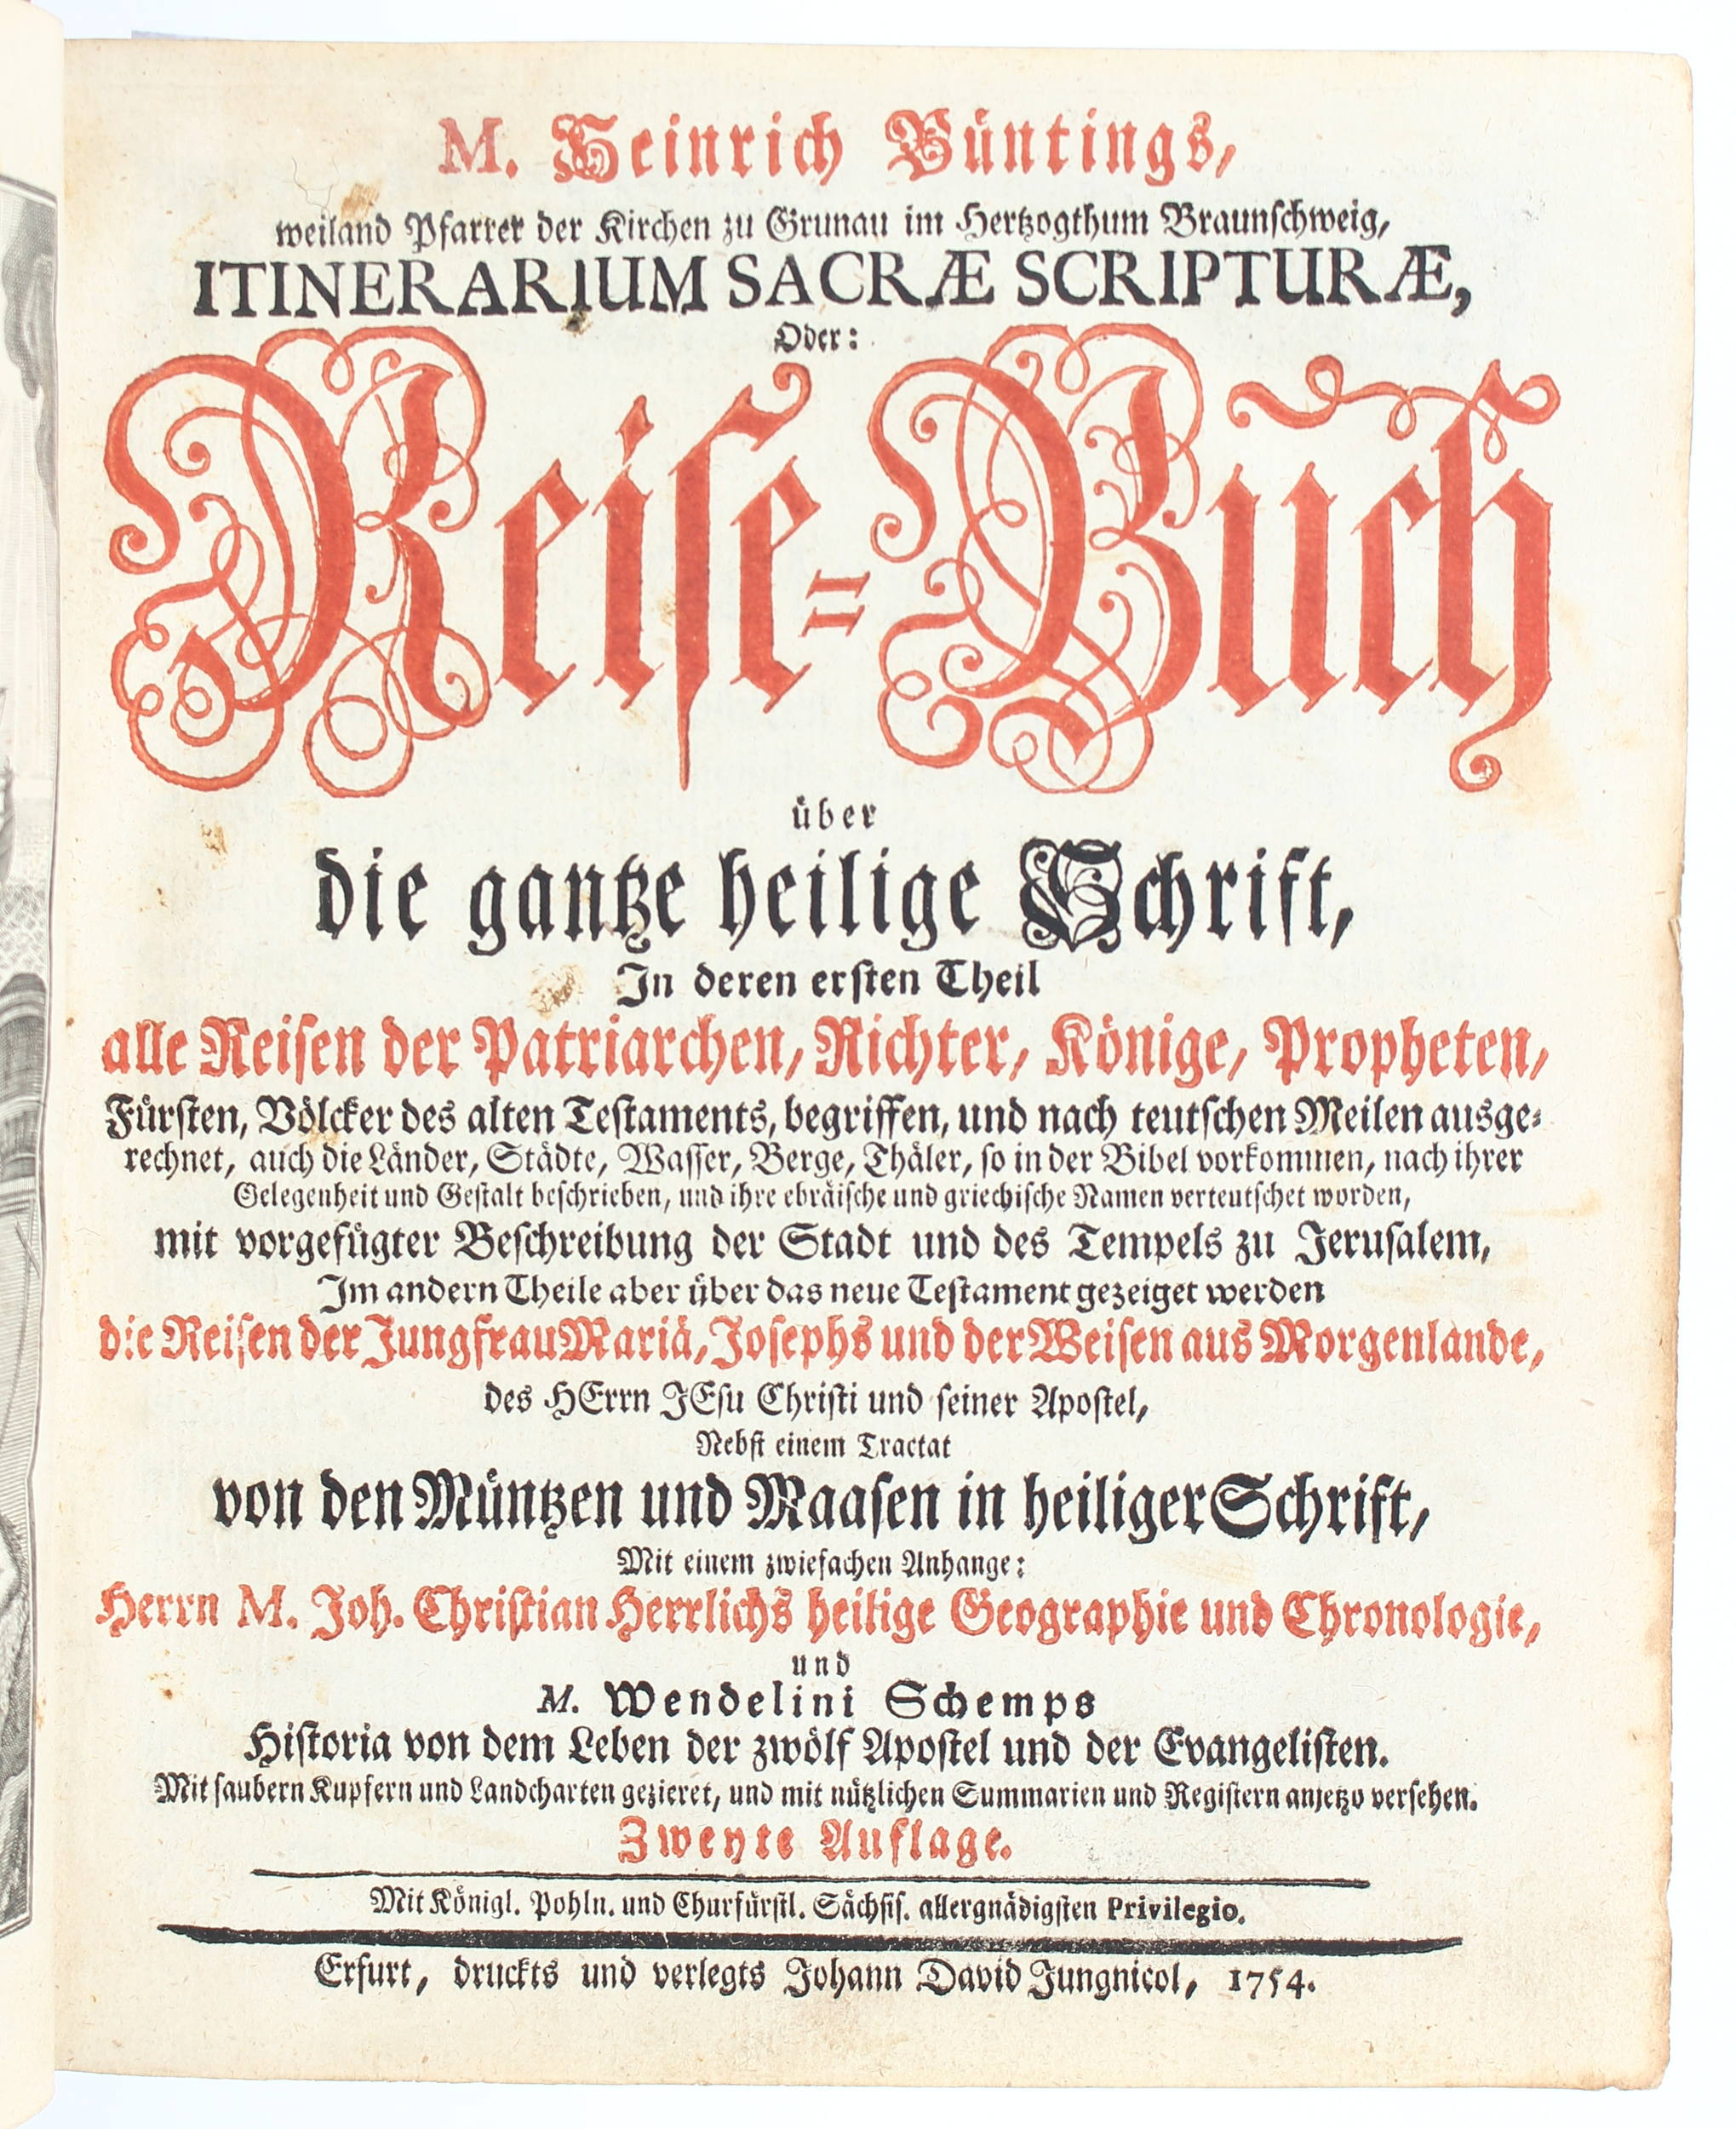 M. Heinrich Büntings,
weiland Pfarrer der Kirchen zu Grunau im Hertzogthum Braunschweig,
ITINERARIUM SACRÆ SCRIPTURÆ,
Oder:
Reise-Buch
über
die gantze heilige Schrift,
In deren ersten Theil
alle Reisen der Patriarchen, Richter, Könige, Propheten,
Fürsten, Völcker des alten Testaments, begriffen, und nach teutschen Meilen ausge-
rechnet, auch die Länder, Städte, Wasser, Berge, Thäler, so in der Bibel vorkommen, nach ihrer
Gelegenheit und Gestalt beschrieben, und ihre ebräische und griechische Namen verteutschet worden,
mit vorgefügter Beschreibung der Stadt und des Tempels zu Jerusalem,
Im andern Theile aber über das neue Testament gezeiget werden
die Reisen der Jungfrau Mariä, Josephs und der Weisen aus Morgenlande,
des HErrn JEsu Christi und seiner Apostel,
Nebst einem Tractat
von den Müntzen und Maasen in heiliger Schrift,
Mit einem zwiefachen Anhange:
Herrn M. Joh. Christian Herrlichs heilige Geographie und Chronologie,
und
M. Wendelini Schemps
Historia von dem Leben der zwölf Apostel und der Evangelisten.
Mit saubern Kupfern und Landcharten gezieret, und mit nützlichen Summarien und Registern anjetzo versehen.
Zweyte Auflage.
Mit Königl. Pohln. und Churfürstl. Sächsis. allergnädigsten Privilegio.
Erfurt, druckts und verlegts Johann David Jungnicol, 1754.